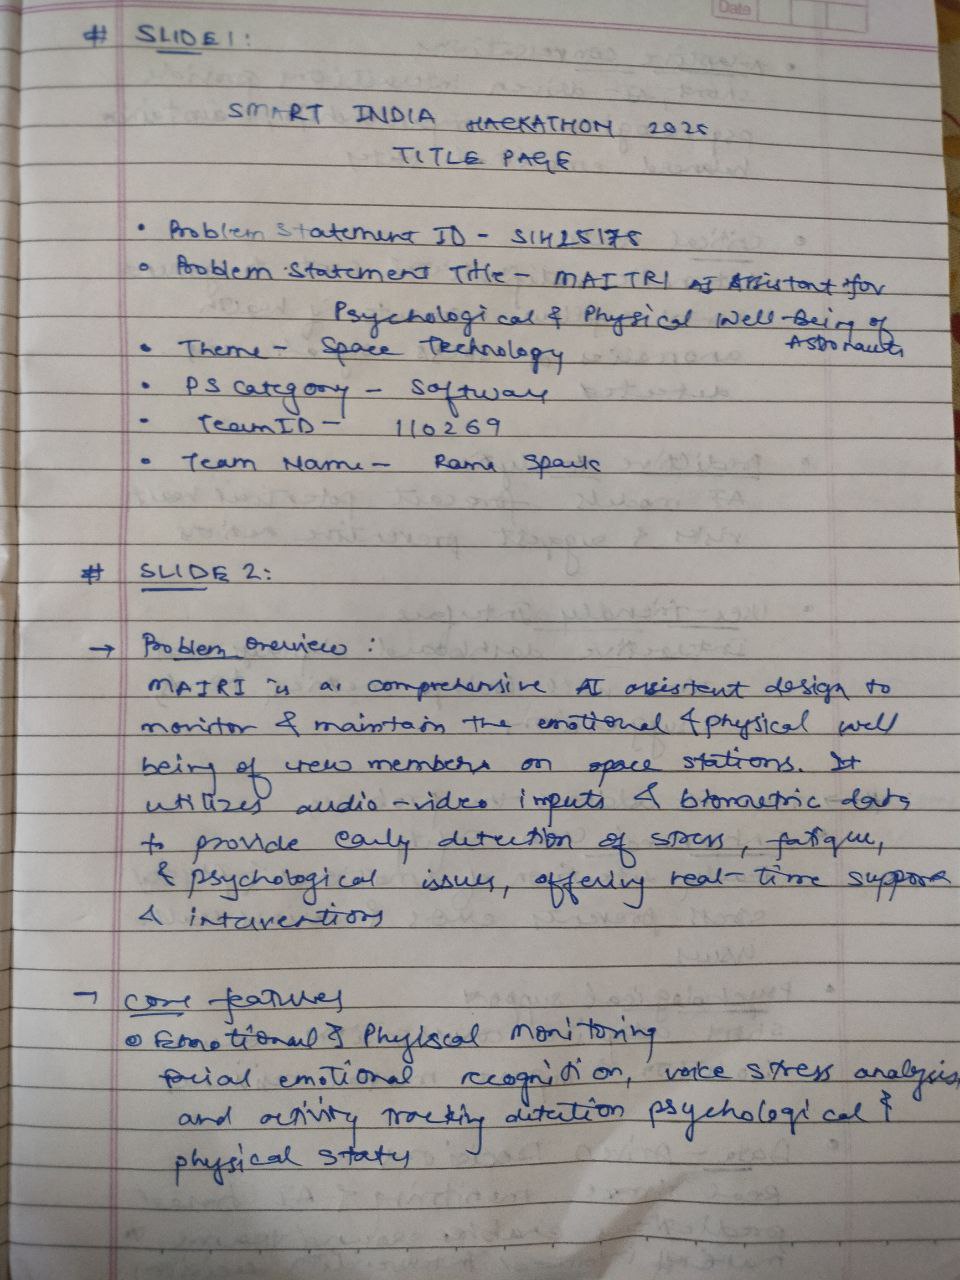 Date
# SLIDE 1:
SMART INDIA HACKATHON 2025
TITLE PAGE
• Problem Statement ID - SIH25175
• Problem Statement Title - MAITRI AI Assistant for
Psychological & Physical Well-Being of
Astronauts
• Theme - Space Technology
• PS Category - Software
• Team ID - 110269
• Team Name - Rama Spark
# SLIDE 2:
→ Problem Overview :
MAIRI is a comprehensive AI assistent design to
monitor & maintain the emotional & physical well
being of crew members on space stations. It
utilizes audio-video inputs & biometric data
to provide early detection of stress, fatique,
& psychological issues, offering real-time support
& interventions
→ Core features
• Emotional & Physical Monitoring
facial emotional recognition, voice stress analysis
and activity tracking detection psychological &
physical status